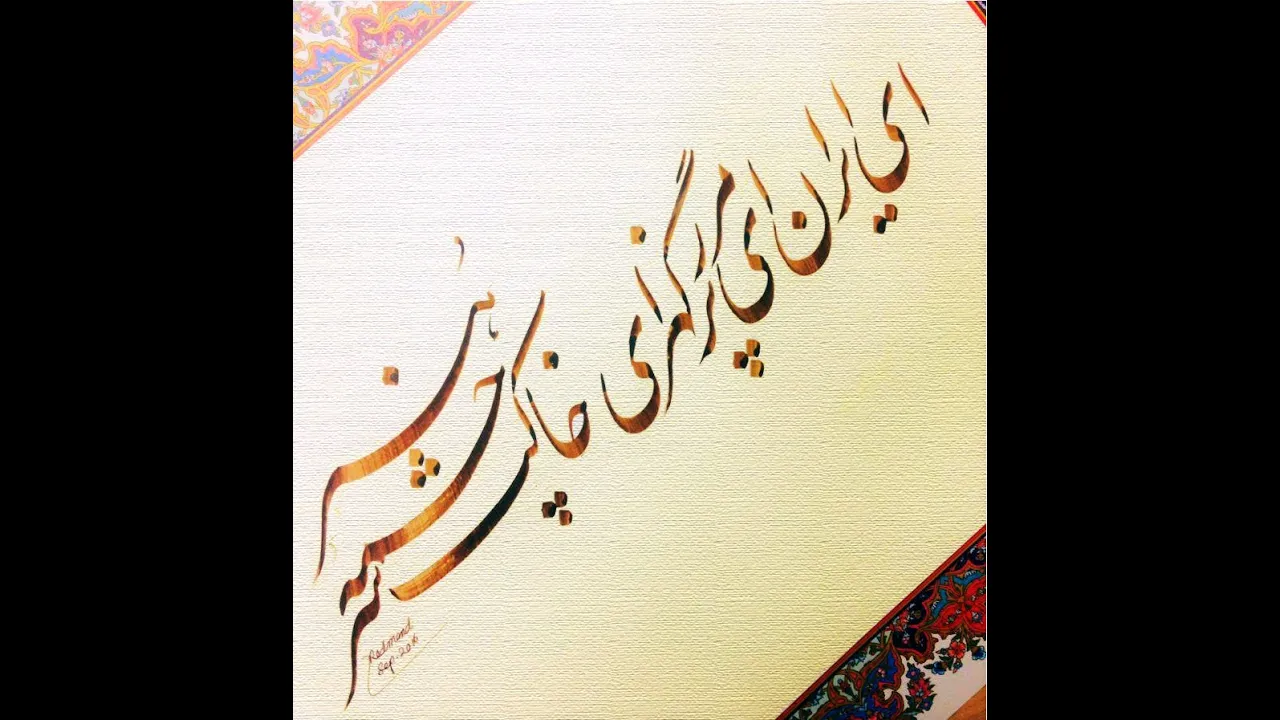 ای ایران ای مرز پر گهر ای خاکت سرچشمه هنر
Redmond
Sep. 2016